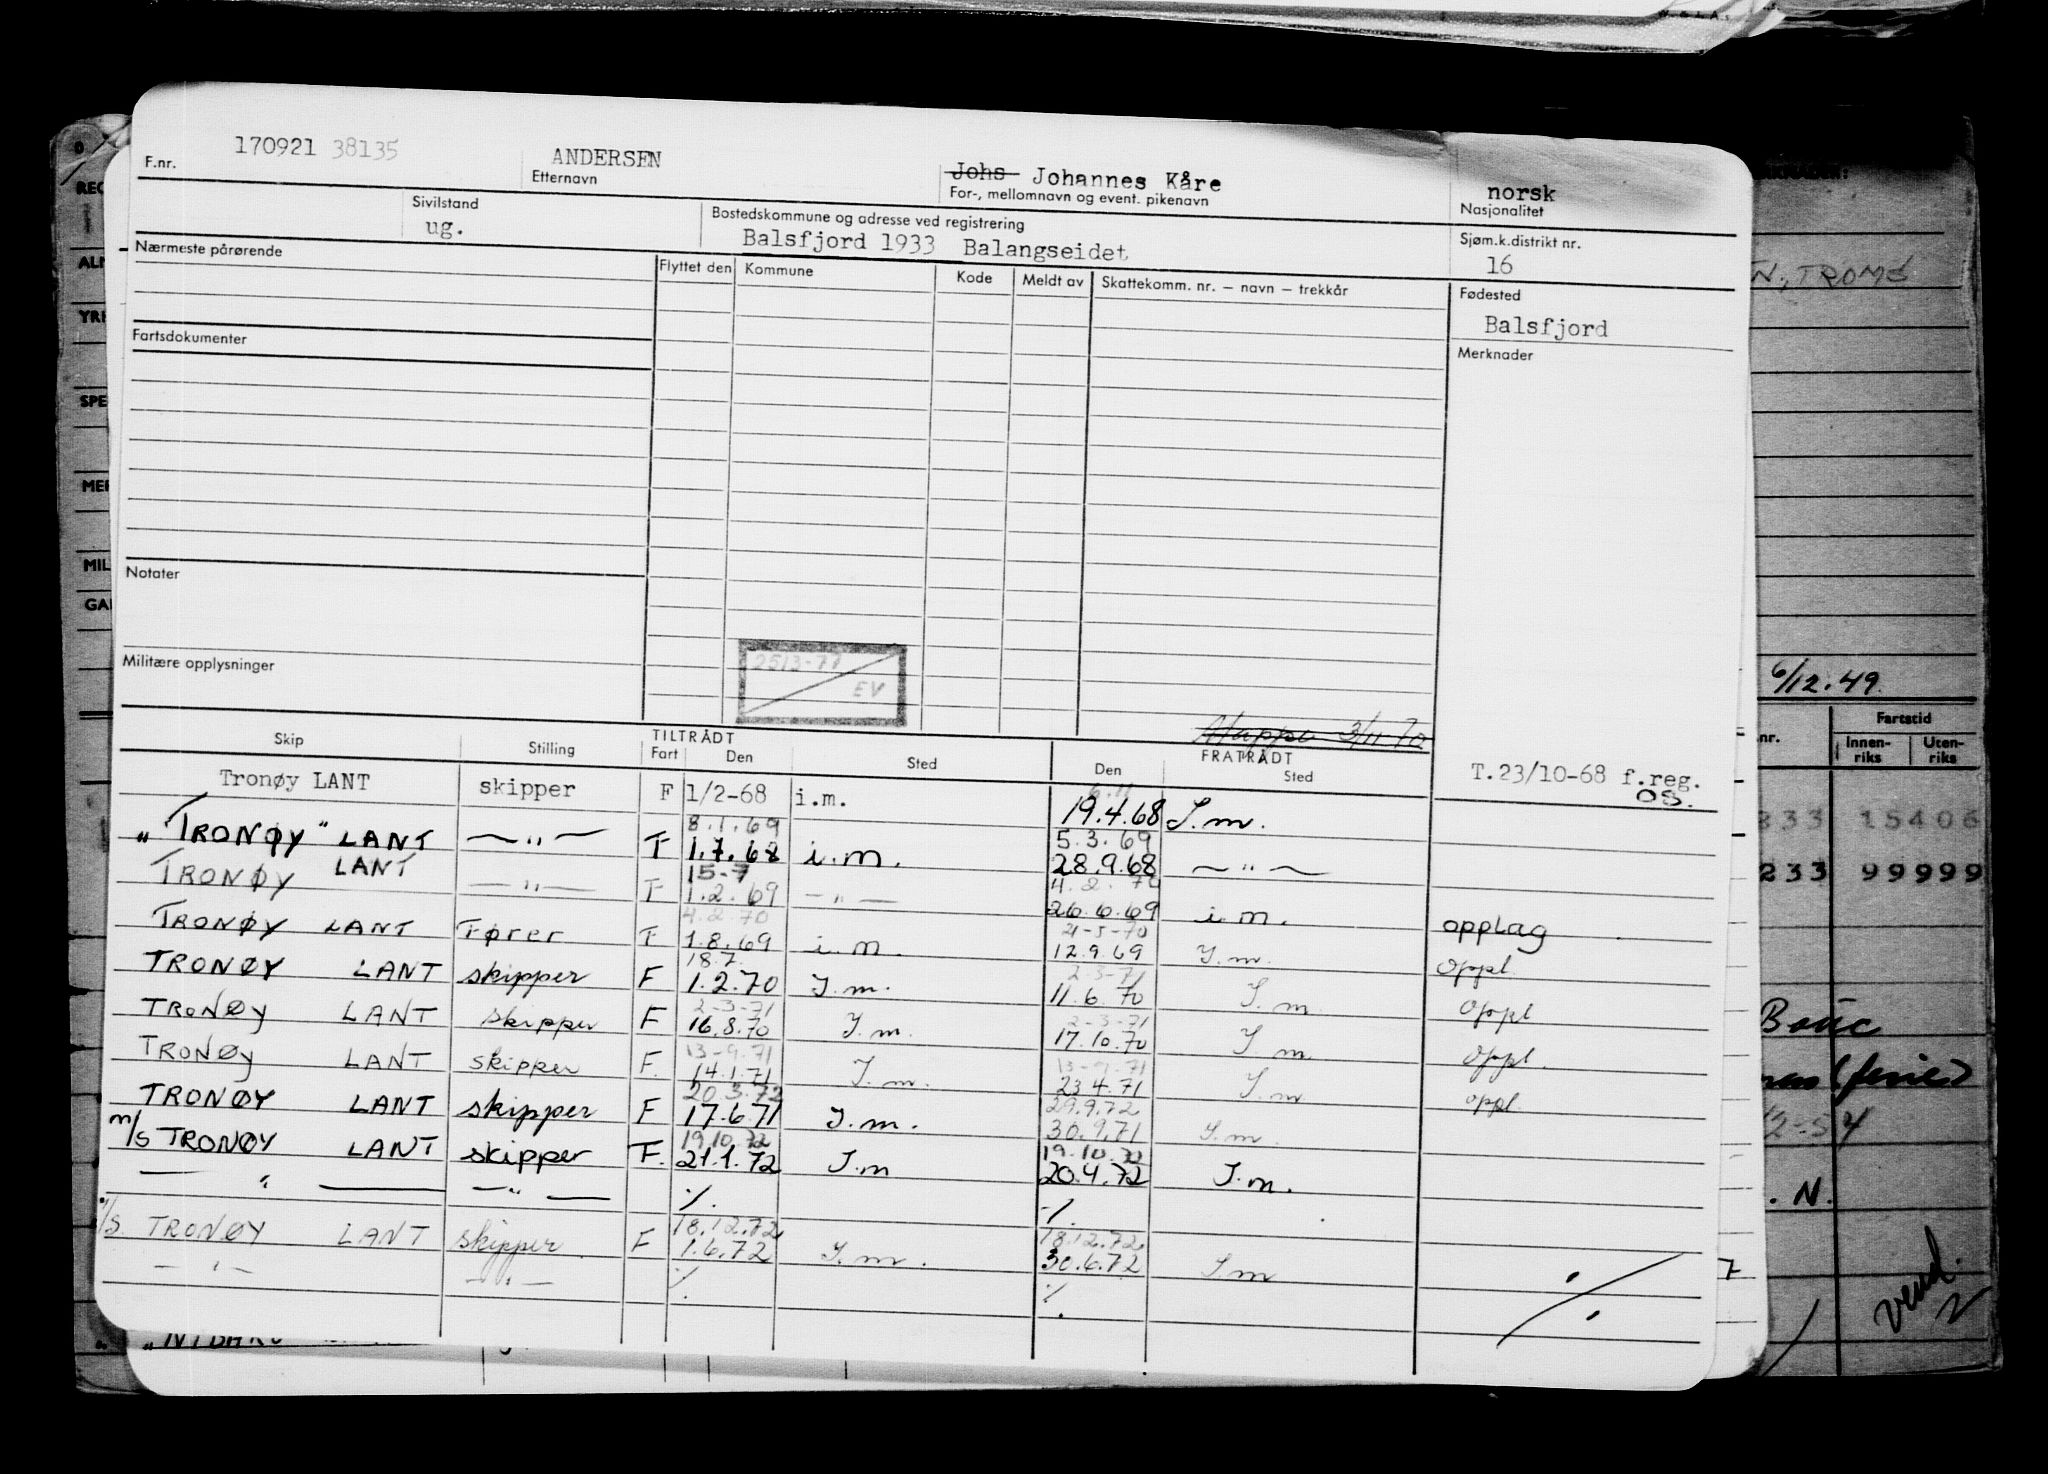 170921 38135
F.nr.
ANDERSEN
Etternavn
Johs Johannes Kåre
For-, mellomnavn og event. pikenavn
norsk
Nasjonalitet
Sivilstand
ug.
Bostedskommune og adresse ved registrering
Balsfjord 1933 Balangseidet
Sjøm.k.distrikt nr.
16
Nærmeste pårørende
Flyttet den Kommune Kode Meldt av Skattekomm. nr. – navn – trekkår
Fødested
Balsfjord
Fartsdokumenter
Merknader
Notater
Militære opplysninger
2513-77
EV
3/11 70
Skip Stilling TILTRÅDT Fart Den Sted FRATRÅDT Den Sted
Tronøy LANT skipper F 1/2-68 i.m. 6.11 19.4.68 I.m. T.23/10-68 f.reg. OS.
8.1.69 5.3.69
"TRONØY" LANT — " — T 1.7.68 i.m. 28.9.68 — " —
15-7 4.2.70
TRONØY LANT — " — T 1.2.69 — " — 26.6.69 i.m. opplag
4.2.70 21-5-70
TRONØY LANT Fører T 1.8.69 i.m. 12.9.69 I.m. Oppl.
18.7. 2-3-71
TRONØY LANT skipper F 1.2.70 I.m. 11.6.70 I.m. Oppl
2-3-71 2-3-71
TRONØY LANT skipper F 16.8.70 I.m. 17.10.70 I.m. Oppl.
13-9.71 13-9-71
TRONØY LANT skipper F. 14.1.71 I.m. 23.4.71 I.m. oppl.
20.3.72 29.9.72
TRONØY LANT skipper F 17.6.71 I.m. 30.9.71 I.m.
19.10.72 19.10.72
m/s TRONØY LANT skipper F. 21.1.72 I.m 20.4.72 I.m.
— " — — " — ·/. ·/.
18.12.72 18.12.72
/s TRONØY LANT skipper F 1.6.72 I.m. 30.6.72 I.m
— " — — " — ·/. ·/.
REG
ALM
YRK
SPE
MER
MIL
GAI
N., TROMS
6/12.49
nr. Fartstid
Innen-riks Uten-riks
833 15406
233 99999
(ferie)
12-54
. N.
7
vend.